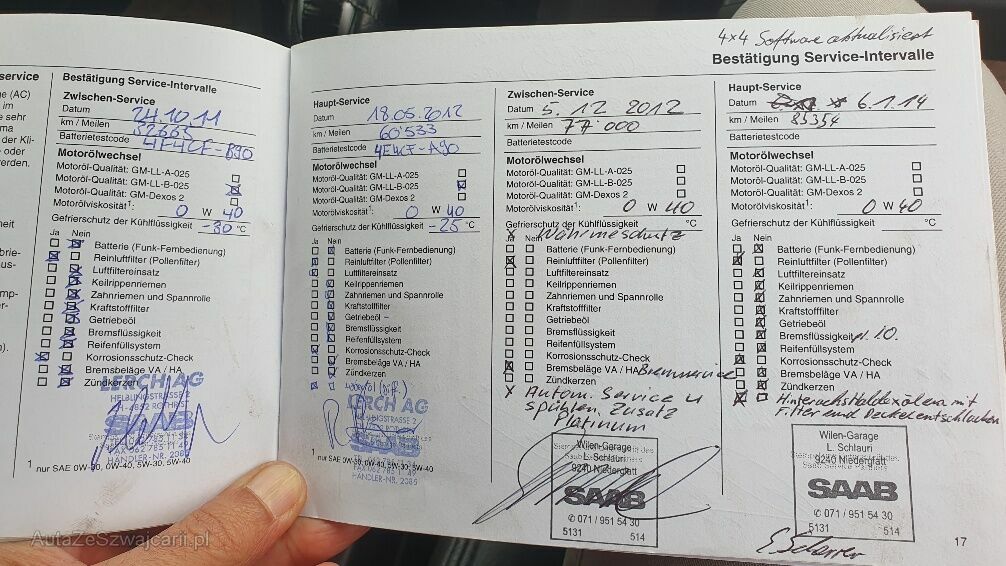 service
e (AC)
im
e sehr
ma
der Kli-
oder
erden.
Bestätigung Service-Intervalle
Zwischen-Service
Datum 24.10.11
km / Meilen 52663
Batterietestcode 4F4CF-B90
Motorölwechsel
Motoröl-Qualität: GM-LL-A-025
Motoröl-Qualität: GM-LL-B-025
Motoröl-Qualität: GM-Dexos 2
Motorölviskosität¹: 0 W 40
Gefrierschutz der Kühlflüssigkeit -30 °C
Ja Nein
Batterie (Funk-Fernbedienung)
Reinluftfilter (Pollenfilter)
Luftfiltereinsatz
Keilrippenriemen
Zahnriemen und Spannrolle
Kraftstofffilter
Getriebeöl
Bremsflüssigkeit
Reifenfüllsystem
Korrosionsschutz-Check
Bremsbeläge VA / HA
Zündkerzen
LERCH AG
HELBLINGSTRASSE 2
CH-4852 ROTHRIST
SAAB
HÄNDLER-NR. 2085
1 nur SAE 0W-30, 0W-40, 5W-30, 5W-40
Haupt-Service
Datum 18.05.2012
km / Meilen 60'533
Batterietestcode 4F4CF-A90
Motorölwechsel
Motoröl-Qualität: GM-LL-A-025
Motoröl-Qualität: GM-LL-B-025
Motoröl-Qualität: GM-Dexos 2
Motorölviskosität¹: 0 W 40
Gefrierschutz der Kühlflüssigkeit -25 °C
Ja Nein
Batterie (Funk-Fernbedienung)
Reinluftfilter (Pollenfilter)
Luftfiltereinsatz
Keilrippenriemen
Zahnriemen und Spannrolle
Kraftstofffilter
Getriebeöl -
Bremsflüssigkeit
Reifenfüllsystem
Korrosionsschutz-Check
Bremsbeläge VA / HA
Zündkerzen
LERCH AG
HELBLINGSTRASSE 2
SAAB
FAX 062 785 11 49
HÄNDLER-NR. 2085
1 nur SAE 0W-30, 0W-40, 5W-30, 5W-40
4x4 Software aktualisiert
Bestätigung Service-Intervalle
Zwischen-Service
Datum 5.12 2012
km / Meilen 77'000
Batterietestcode
Motorölwechsel
Motoröl-Qualität: GM-LL-A-025
Motoröl-Qualität: GM-LL-B-025
Motoröl-Qualität: GM-Dexos 2
Motorölviskosität¹: 0 W 40
Gefrierschutz der Kühlflüssigkeit °C
Ja Nein
x Wärmeschutz
Batterie (Funk-Fernbedienung)
Reinluftfilter (Pollenfilter)
Luftfiltereinsatz
Keilrippenriemen
Zahnriemen und Spannrolle
Kraftstofffilter
Getriebeöl
Bremsflüssigkeit
Reifenfüllsystem
Korrosionsschutz-Check
Bremsbeläge VA / HA Bremsservice
Zündkerzen
x Autom. Service u
spühlen. Zusatz
Platinum
Wilen-Garage
L. Schlauri
9240 Niederglatt
SAAB
✆ 071 / 951 54 30
5131 514
Haupt-Service
Datum 6.1.14
km / Meilen 85354
Batterietestcode
Motorölwechsel
Motoröl-Qualität: GM-LL-A-025
Motoröl-Qualität: GM-LL-B-025
Motoröl-Qualität: GM-Dexos 2
Motorölviskosität¹: 0 W 40
Gefrierschutz der Kühlflüssigkeit °C
Ja Nein
Batterie (Funk-Fernbedienung)
Reinluftfilter (Pollenfilter)
Luftfiltereinsatz
Keilrippenriemen
Zahnriemen und Spannrolle
Kraftstofffilter
Getriebeöl
Bremsflüssigkeit
Reifenfüllsystem
Korrosionsschutz-Check
Bremsbeläge VA / HA
Zündkerzen
Filter und Deckel
Wilen-Garage
L. Schlauri
9240 Niederglatt
SAAB
✆ 071 / 951 54 30
5131 514
17
AutaZeSzwajcarii.pl